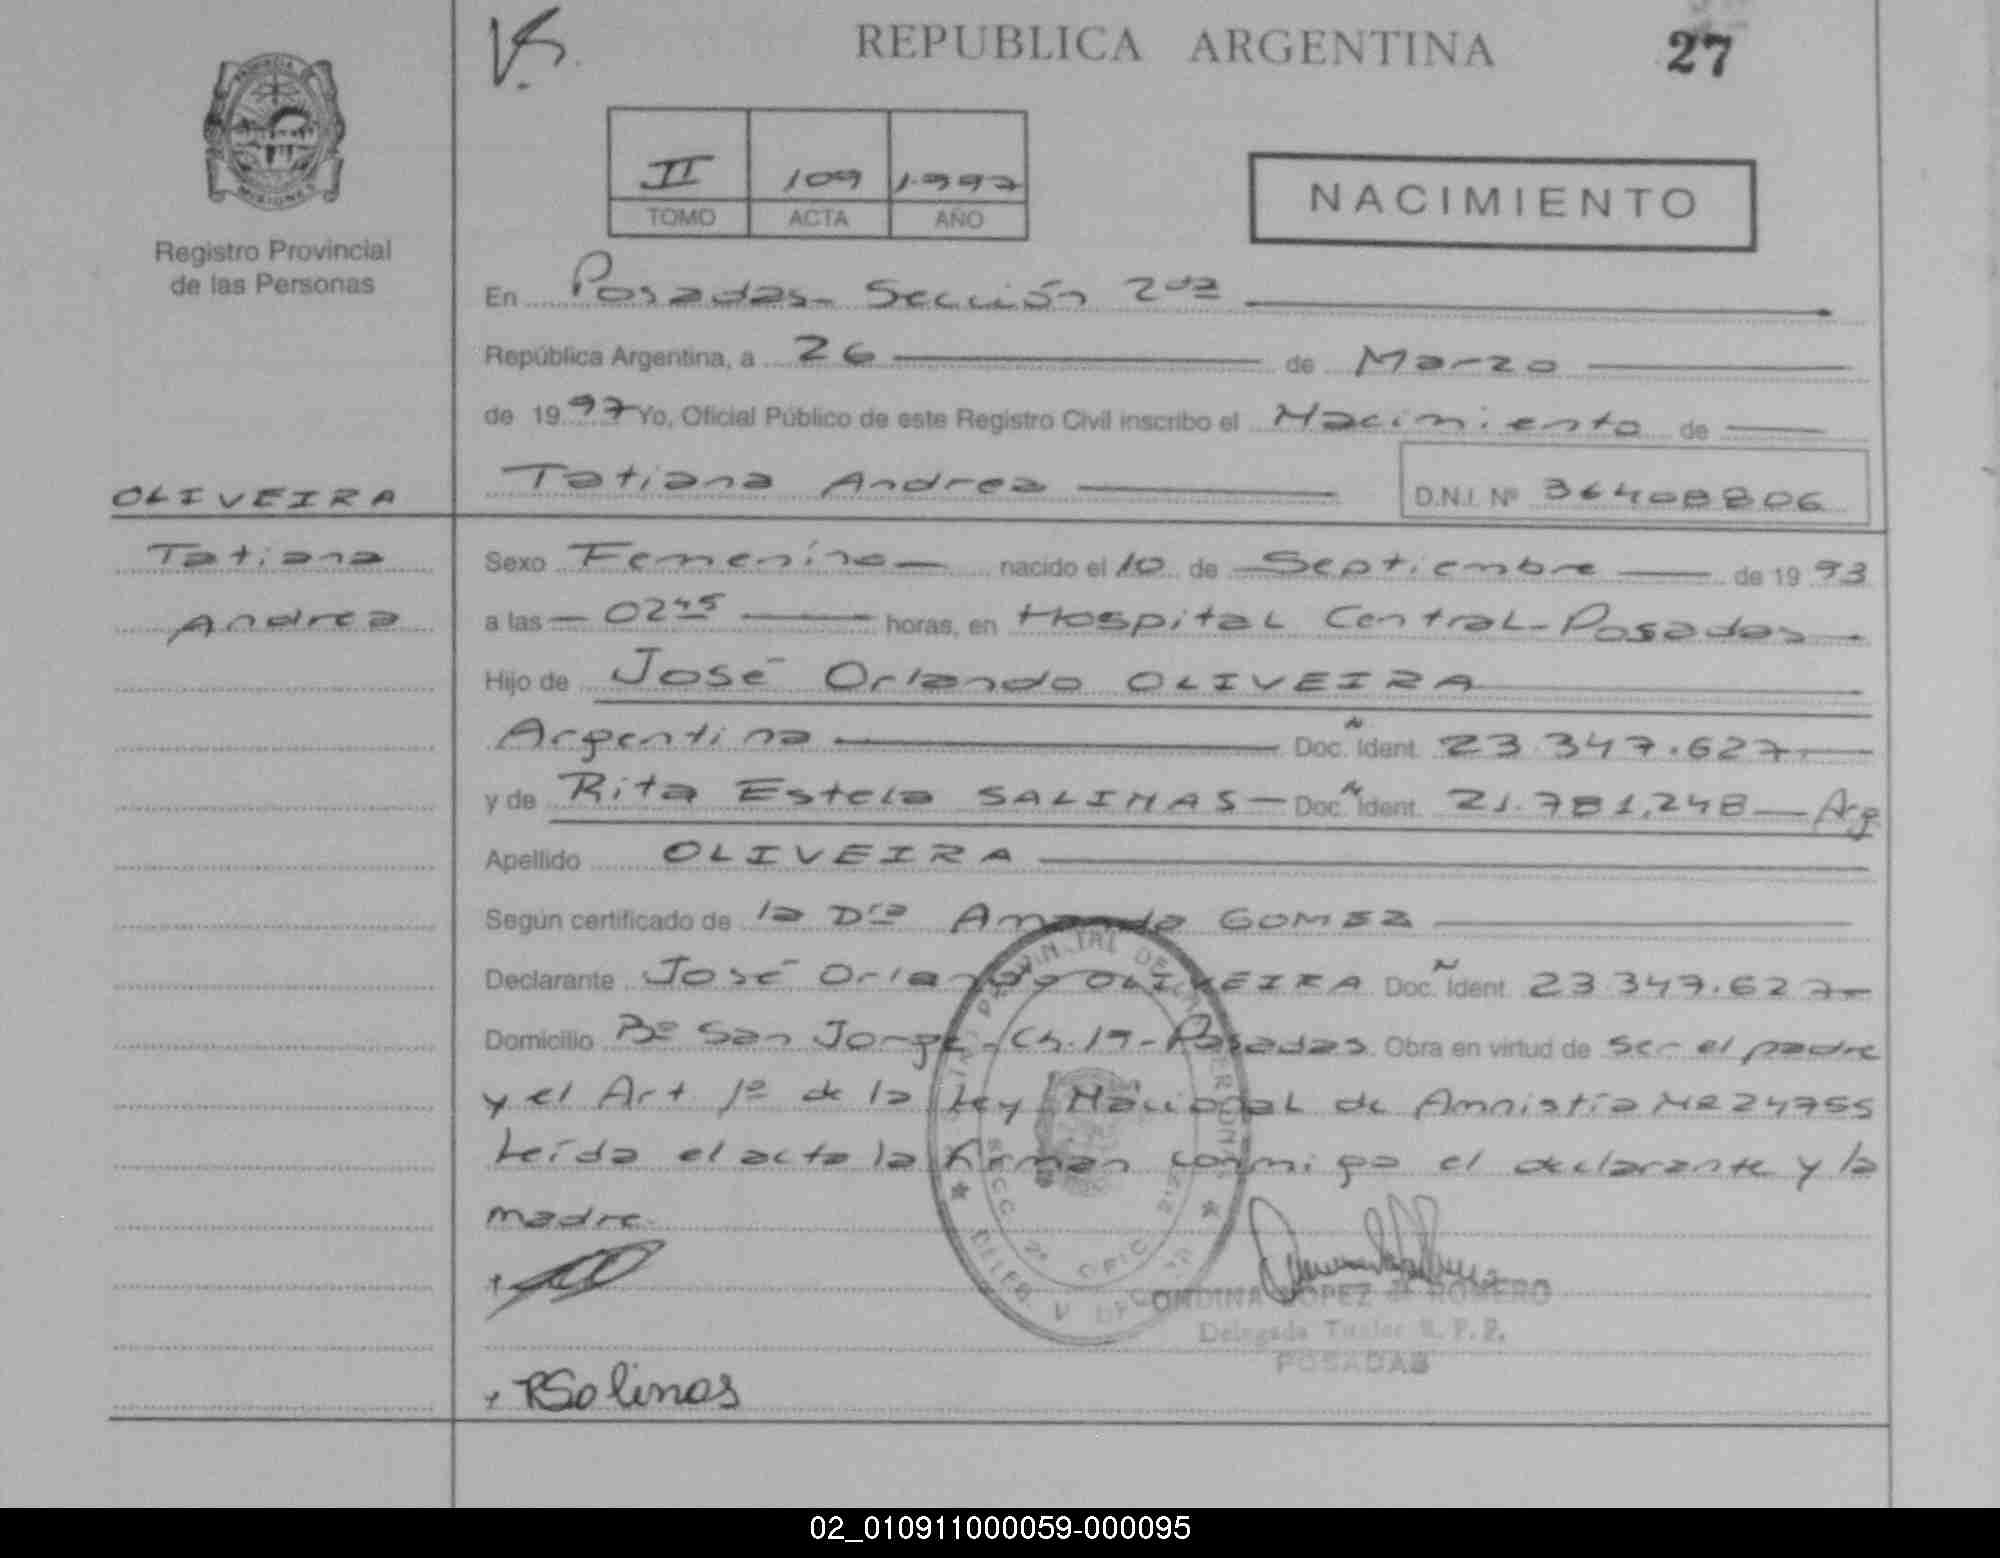 REPUBLICA ARGENTINA
27
PROVINCIA DE
MISIONES
Registro Provincial
de las Personas
II 109 1.997
TOMO ACTA AÑO
NACIMIENTO
En Posadas- Sección 2da
República Argentina, a 26 de Marzo
de 1997 Yo, Oficial Público de este Registro Civil inscribo el Nacimiento de
OLIVEIRA
Tatiana Andrea D.N.I. Nº 36408806
Tatiana
Andrea
Sexo Femenino nacido el 10 de Septiembre de 1993
a las 0245 horas, en Hospital Central-Posadas
Hijo de José Orlando OLIVEIRA
Argentina Doc. Ident. 23.347.627
y de Rita Estela SALINAS - Doc. Ident. 21.781.248 - Arg
Apellido OLIVEIRA
Según certificado de la Dra Amanda GOMEZ
Declarante José Orlando OLIVEIRA Doc. Ident. 23.347.627-
Domicilio Bº San Jorge - Ch. 19 - Posadas. Obra en virtud de ser el padre
y el Art 1º de la Ley Nacional de Amnistía NR 24755
Leída el acta la firman conmigo el declarante y la
madre.
ONDINA LOPEZ de ROMERO
Delegada Titular R. P. P.
POSADAS
RSalinas
02_010911000059-000095